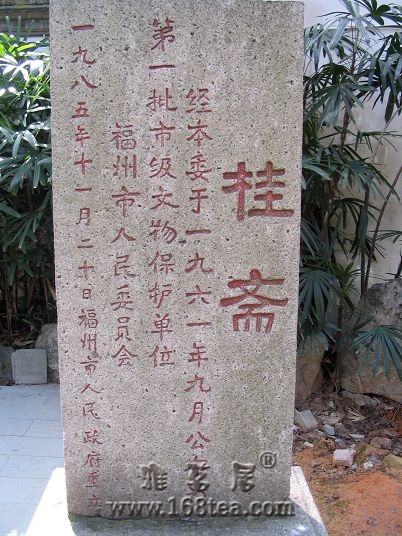 桂斋
经本委于一九六一年九月公布
第一批市级文物保护单位
福州市人民委员会
一九八五年十一月二十日福州市人民政府重立
雅茗居®
www.168tea.com